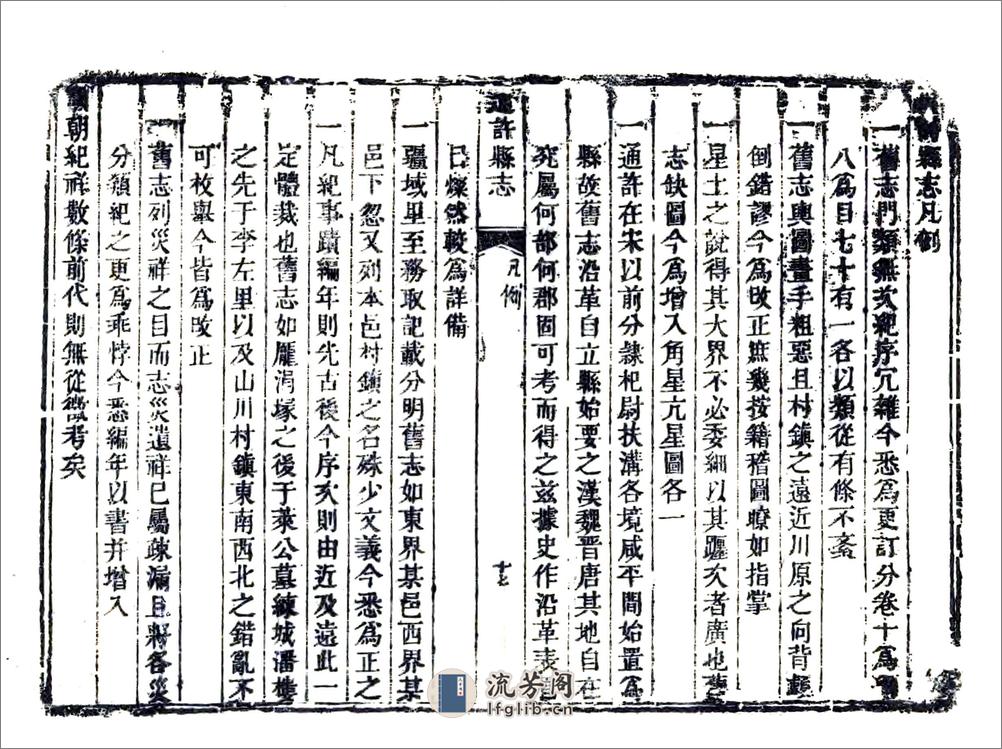 縣志凡例
一舊志門類無次紀序冗雜今悉爲更訂分卷十爲
八爲目七十有一各以類從有條不紊
一舊志輿圖畫手粗惡且村鎮之遠近川原之向背顛
倒錯謬今爲改正庶幾按籍稽圖瞭如指掌
一星土之說得其大界不必委細以其躔次者廣也舊
志缺圖今爲增入角星亢星圖各一
一通許在宋以前分隸杞尉扶溝各境咸平間始置爲
縣故舊志沿革自立縣始要之漢魏晉唐其地自在
究屬何部何郡固可考而得之兹據史作沿革表
通許縣志
凡例
十七
已燦然較爲詳備
一疆域里至務取記載分明舊志如東界某邑西界某
邑下忽又列本邑村鎮之名殊少文義今悉爲正之
一凡紀事蹟編年則先古後今序次則由近及遠此一
定體裁也舊志如龎涓塚之後于萊公墓練城潘樓
之先于李左里以及山川村鎮東南西北之錯亂不
可枚舉今皆爲改正
一舊志列災祥之目而志災遺祥已屬疎漏且將各災
分類紀之更爲乖悖今悉編年以書并增入
朝紀祥數條前代則無從徵考矣
流芳阁
lfglib.cn